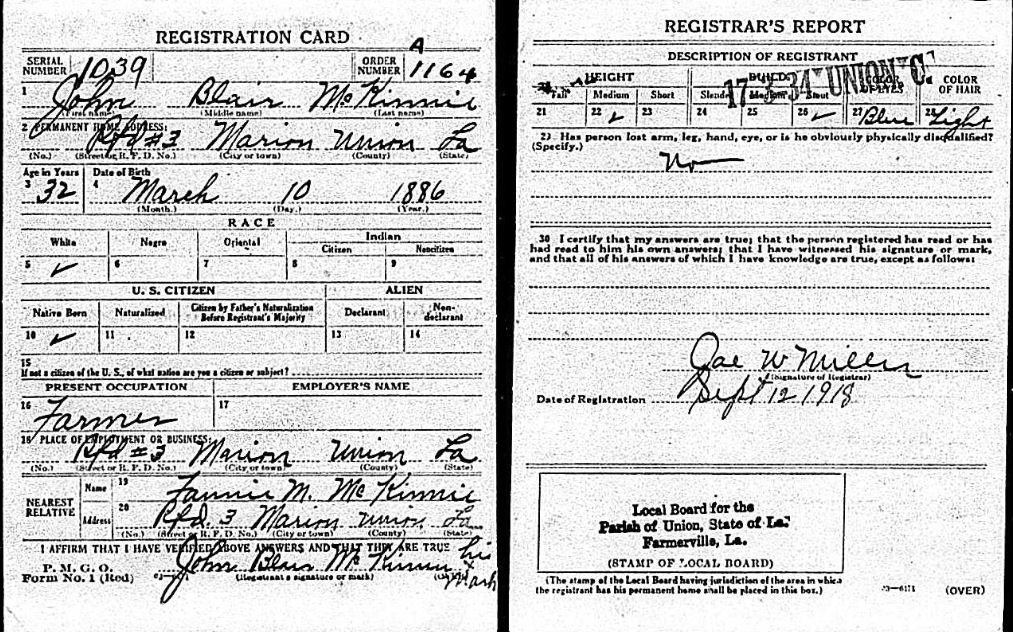 REGISTRATION CARD
SERIAL NUMBER 1039 ORDER NUMBER A 1164
1 John Blair McKinnie
(First name) (Middle name) (Last name)
2 PERMANENT HOME ADDRESS:
Rfd #3 Marion Union La
(No.) (Street or R. F. D. No.) (City or town) (County) (State)
Age in Years Date of Birth
3 32 4 March 10 1886
(Month.) (Day.) (Year.)
RACE
White Negro Oriental Indian
Citizen Noncitizen
5 ✓ 6 7 8 9
U. S. CITIZEN ALIEN
Native Born Naturalized Citizen by Father's Naturalization Before Registrant's Majority Declarant Non-declarant
10 ✓ 11 12 13 14
15
If not a citizen of the U. S., of what nation are you a citizen or subject?
PRESENT OCCUPATION EMPLOYER'S NAME
16 Farmer 17
18 PLACE OF EMPLOYMENT OR BUSINESS:
Rfd #3 Marion Union La
(No.) (Street or R. F. D. No.) (City or town) (County) (State)
NEAREST RELATIVE Name 19 Fannie M. McKinnie
Address 20 Rfd. 3 Marion Union La
(No.) (Street or R. F. D. No.) (City or town) (County) (State)
I AFFIRM THAT I HAVE VERIFIED ABOVE ANSWERS AND THAT THEY ARE TRUE
P. M. G. O.
Form No. 1 (Red) John Blair McKinnie his x mark
(Registrant's signature or mark)
REGISTRAR'S REPORT
DESCRIPTION OF REGISTRANT
HEIGHT BUILD COLOR OF EYES COLOR OF HAIR
Tall Medium Short Slender Medium Stout
21 22 ✓ 23 24 25 26 ✓ 27 Blue 28 Light
29 Has person lost arm, leg, hand, eye, or is he obviously physically disqualified?
(Specify.)
No
30 I certify that my answers are true; that the person registered has read or has
had read to him his own answers; that I have witnessed his signature or mark,
and that all of his answers of which I have knowledge are true, except as follows:
Joe W Miller
(Signature of Registrar)
Date of Registration Sept 12 1918
Local Board for the
Parish of Union, State of La.
Farmerville, La.
(STAMP OF LOCAL BOARD)
(The stamp of the Local Board having jurisdiction of the area in which
the registrant has his permanent home shall be placed in this box.)
(OVER)